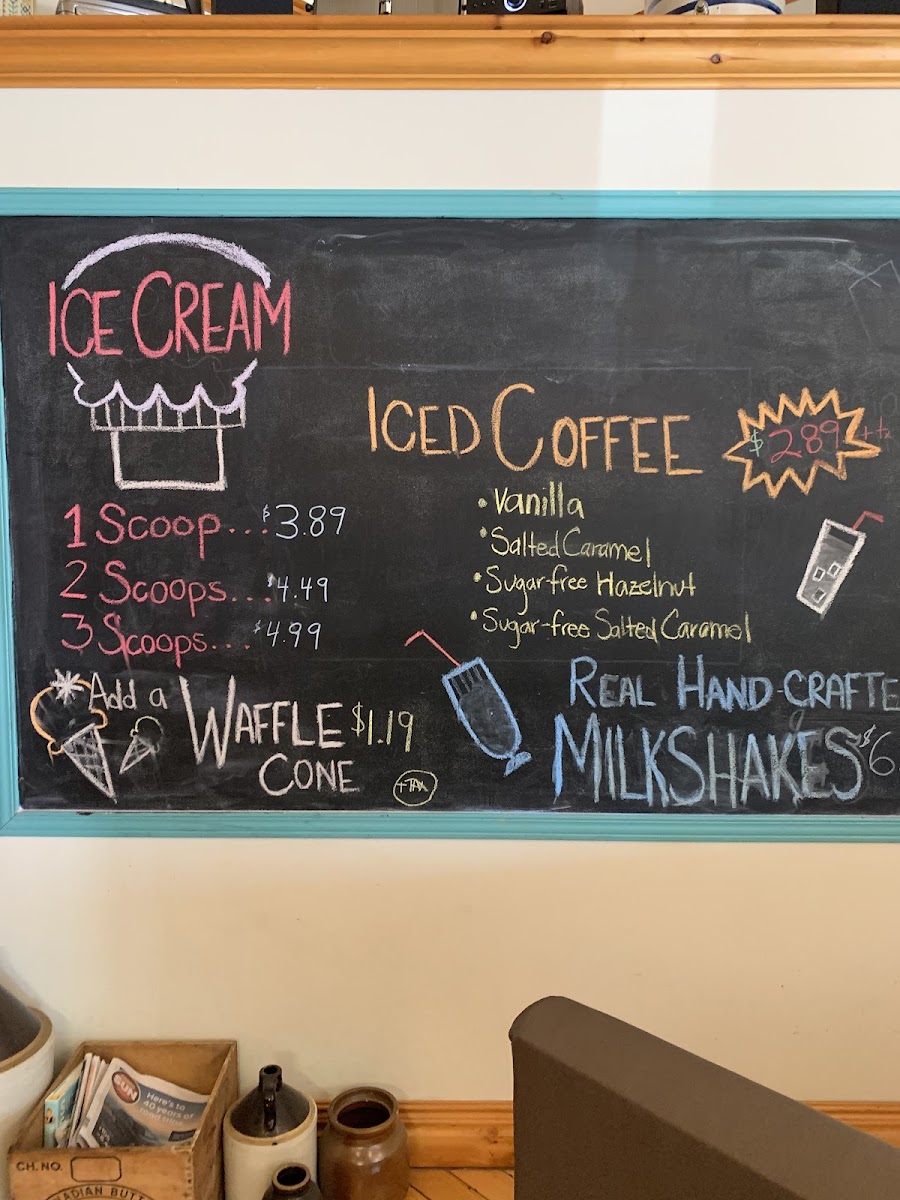 ICE CREAM
1 Scoop...$3.89
2 Scoops...$4.49
3 Scoops...$4.99
Add a WAFFLE CONE $1.19
+TAX
ICED COFFEE
$2.89
• Vanilla
• Salted Caramel
• Sugar-free Hazelnut
• Sugar-free Salted Caramel
REAL HAND-CRAFTE
MILKSHAKES $6
SUN
Here's to
40 years of
CH. NO.
ADIAN BUTT